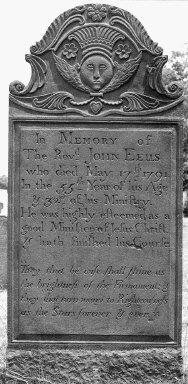 In Memory of
The Revd. John Ellis
who died May 17th. 1791
In the 55th Year of his Age
& 32d. of his Ministry.
He was highly esteemed, as a
good Minister of Jesus Christ,
& hath finished his Course
They that be wise shall shine as
the brightness of the Firmament; &
they that turn many to Righteousness
as the Stars forever & ever